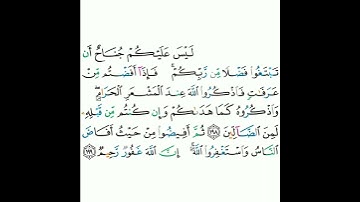 لَيْسَ عَلَيْكُمْ جُنَاحٌ أَن
تَبْتَغُوا۟ فَضْلًا مِّن رَّبِّكُمْ ۚ فَإِذَآ أَفَضْتُم مِّنْ
عَرَفَٰتٍ فَٱذْكُرُوا۟ ٱللَّهَ عِندَ ٱلْمَشْعَرِ ٱلْحَرَامِ ۖ
وَٱذْكُرُوهُ كَمَا هَدَىٰكُمْ وَإِن كُنتُم مِّن قَبْلِهِۦ
لَمِنَ ٱلضَّآلِّينَ ١٩٨ ثُمَّ أَفِيضُوا۟ مِنْ حَيْثُ أَفَاضَ
ٱلنَّاسُ وَٱسْتَغْفِرُوا۟ ٱللَّهَ ۚ إِنَّ ٱللَّهَ غَفُورٌ رَّحِيمٌ ١٩٩